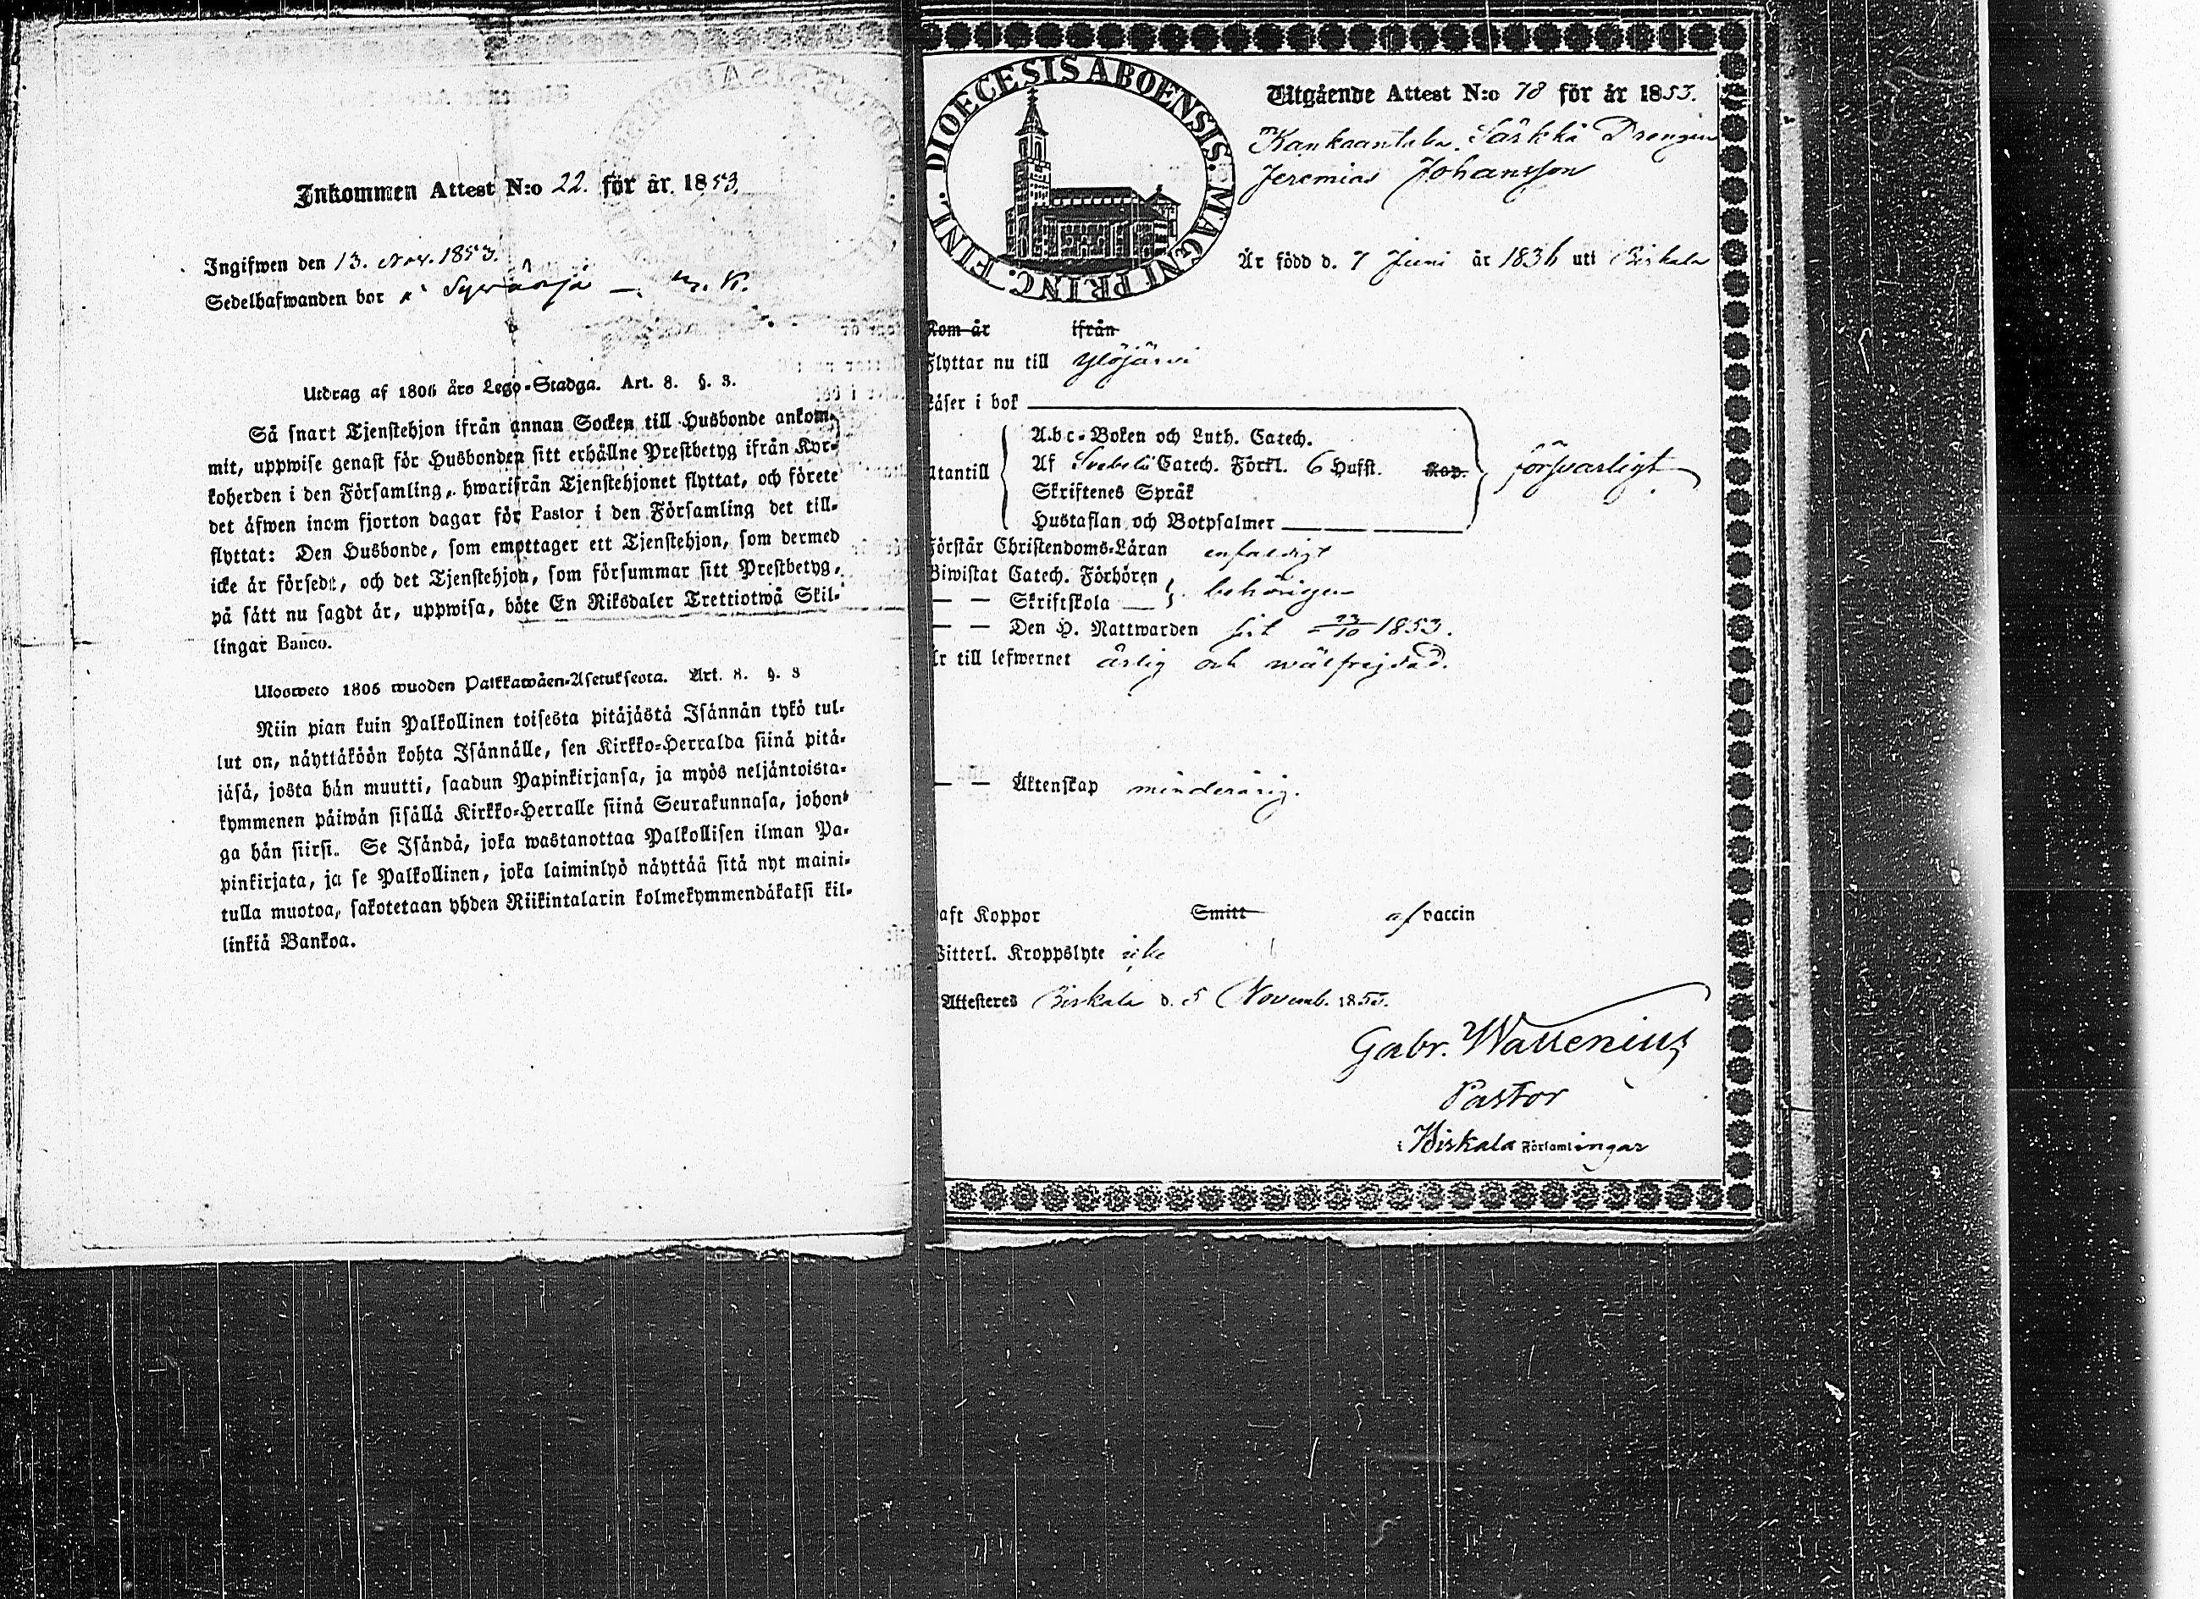 Inkommen Attest N:o 22. för år 1853.
Ingifwen den 13. Nov. 1853.
Sedelhafwanden bor i
Utdrag af 1806 års Lego-Stadga. Art. 8. §. 3.
Så snart Tjenstehjon ifrån annan Socken till Husbonde ankom-
mit, uppwise genast för Husbonden sitt erhållne Prestbetyg ifrån Kyr-
koherden i den Församling, hwarifrån Tjenstehjonet flyttat, och förete
det äfwen inom fjorton dagar för Pastor i den Församling det till-
flyttat: Den Husbonde, som emottager ett Tjenstehjon, som dermed
icke är försedt, och det Tjenstehjon, som försummar sitt Prestbetyg,
på sätt nu sagdt är, uppwisa, böte En Riksdaler Trettiotwå Skil-
lingar Banco.
Uloswето 1806 wuoden Palkkawäen-Asetuksesta. Art. 8. §. 3
Niin pian kuin Palkollinen toisesta pitäjästä Isännän tykö tul-
lut on, näyttäköön kohta Isännälle, sen Kirkko-Herralda siinä pitä-
jäsä, josta hän muutti, saadun Papinkirjansa, ja myös neljäntoista-
kymmenen päiwän sisällä Kirkko-Herralle siinä Seurakunnasa, johon-
ga hän siirsi. Se Isändä, joka wastanottaa Palkollisen ilman Pa-
pinkirjata, ja se Palkollinen, joka laiminlyö näyttää sitä nyt maini-
tulla muotoa, sakotetaan yhden Riikintalarin kolmekymmendäkaksi kil-
linkiä Bankoa.
DIOECESIS ABOENSIS. MAGNI PRINC. FINL.
Utgående Attest N:o 78 för år 1853.
Kankaantaka Särkkä Drengen
Jeremias Johansson
Är född d. 7 Juni år 1836 uti Birkala
Kom år ifrån
Flyttar nu till Ylöjärvi
Läser i bok
Abc-Boken och Luth. Catech.
Utantill Af Svebelii Catech. Förkl. 6 Hufst. Kap. försvarligt
Skriftenes Språk
Hustaflan och Botpsalmer
Förstår Christendoms-Läran enfaldigt
Biwistat Catech. Förhören behörigen
— — Skriftskola
— — Den H. Nattwarden sist 23/10 1853.
Är till lefwernet ärlig och wälfrejdad.
— — Äktenskap minderårig.
haft Koppor Smitt af vaccin
Witterl. Kroppslyte icke
Attesteres Birkala d. 5 Novemb. 1853.
Gabr. Wallenius
Pastor
i Birkala Församlingar